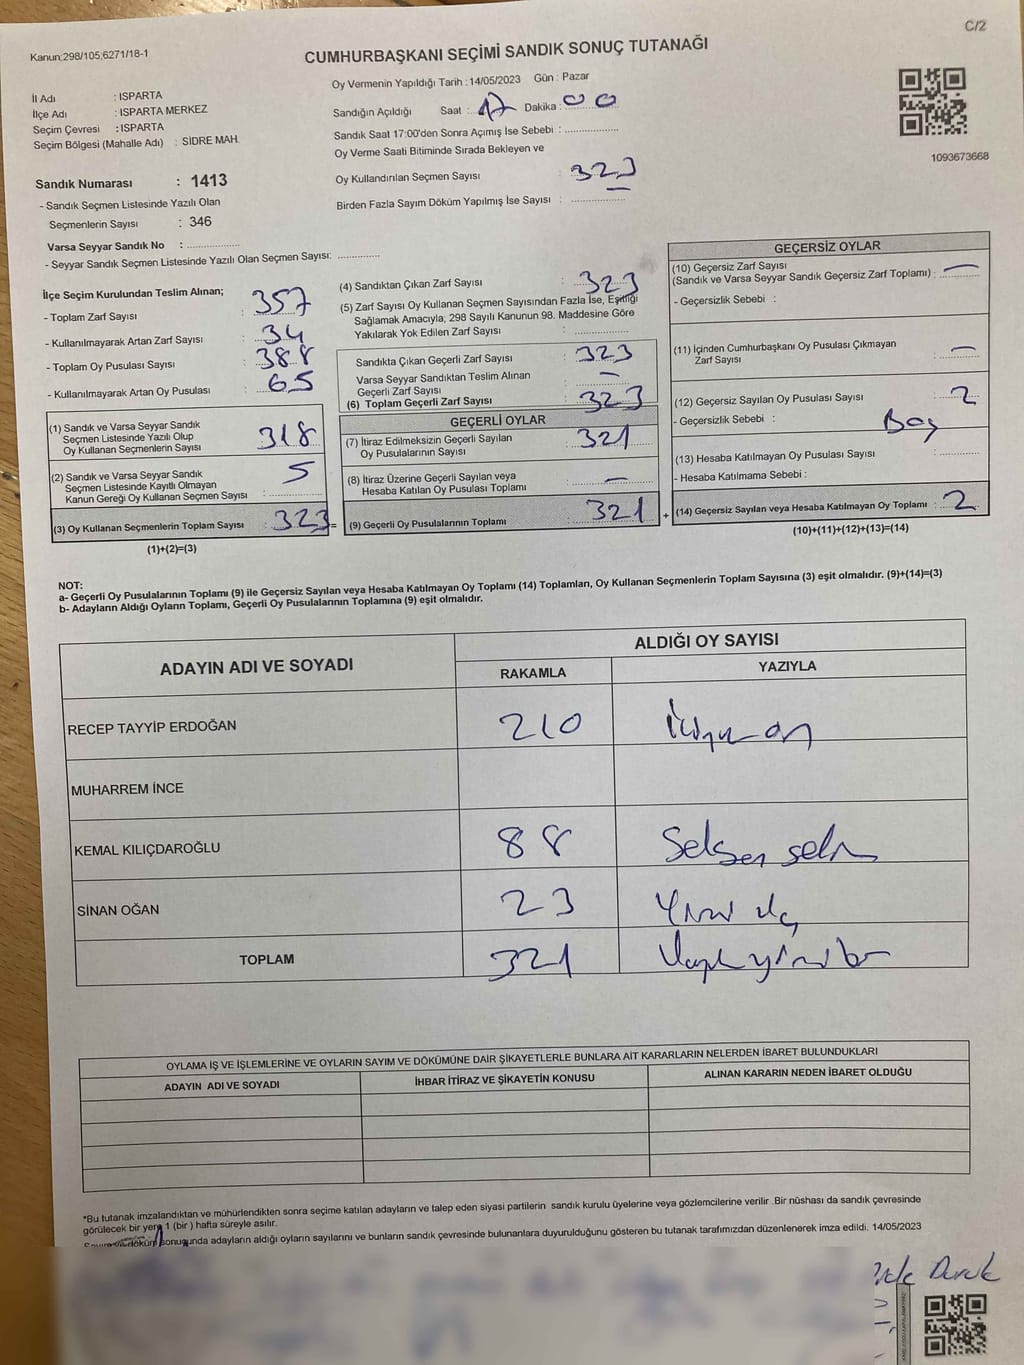 C/2
Kanun;298/105;6271/18-1
CUMHURBAŞKANI SEÇİMİ SANDIK SONUÇ TUTANAĞI
Oy Vermenin Yapıldığı Tarih : 14/05/2023 Gün : Pazar
İl Adı : ISPARTA
İlçe Adı : ISPARTA MERKEZ
Seçim Çevresi : ISPARTA
Seçim Bölgesi (Mahalle Adı) : SİDRE MAH.
Sandığın Açıldığı Saat : 17 Dakika : 00
Sandık Saat 17:00'den Sonra Açımış İse Sebebi :
Oy Verme Saati Bitiminde Sırada Bekleyen ve
Oy Kullandırılan Seçmen Sayısı : 323
Birden Fazla Sayım Döküm Yapılmış İse Sayısı :
1093673668
Sandık Numarası : 1413
- Sandık Seçmen Listesinde Yazılı Olan
Seçmenlerin Sayısı : 346
Varsa Seyyar Sandık No :
- Seyyar Sandık Seçmen Listesinde Yazılı Olan Seçmen Sayısı:
İlçe Seçim Kurulundan Teslim Alınan;
- Toplam Zarf Sayısı : 357
- Kullanılmayarak Artan Zarf Sayısı : 34
- Toplam Oy Pusulası Sayısı : 388
- Kullanılmayarak Artan Oy Pusulası : 65
(1) Sandık ve Varsa Seyyar Sandık
Seçmen Listesinde Yazılı Olup
Oy Kullanan Seçmenlerin Sayısı : 318
(2) Sandık ve Varsa Seyyar Sandık
Seçmen Listesinde Kayıtlı Olmayan
Kanun Gereği Oy Kullanan Seçmen Sayısı : 5
(3) Oy Kullanan Seçmenlerin Toplam Sayısı : 323 =
(1)+(2)=(3)
(4) Sandıktan Çıkan Zarf Sayısı : 323
(5) Zarf Sayısı Oy Kullanan Seçmen Sayısından Fazla İse, Eşitliği
Sağlamak Amacıyla; 298 Sayılı Kanunun 98. Maddesine Göre
Yakılarak Yok Edilen Zarf Sayısı :
Sandıkta Çıkan Geçerli Zarf Sayısı : 323
Varsa Seyyar Sandıktan Teslim Alınan
Geçerli Zarf Sayısı : —
(6) Toplam Geçerli Zarf Sayısı : 323
GEÇERLİ OYLAR
(7) İtiraz Edilmeksizin Geçerli Sayılan
Oy Pusulalarının Sayısı : 321
(8) İtiraz Üzerine Geçerli Sayılan veya
Hesaba Katılan Oy Pusulası Toplamı : —
(9) Geçerli Oy Pusulalarının Toplamı : 321 +
GEÇERSİZ OYLAR
(10) Geçersiz Zarf Sayısı
(Sandık ve Varsa Seyyar Sandık Geçersiz Zarf Toplamı) : —
- Geçersizlik Sebebi :
(11) İçinden Cumhurbaşkanı Oy Pusulası Çıkmayan
Zarf Sayısı : —
(12) Geçersiz Sayılan Oy Pusulası Sayısı : 2
- Geçersizlik Sebebi : Boş
(13) Hesaba Katılmayan Oy Pusulası Sayısı :
- Hesaba Katılmama Sebebi :
(14) Geçersiz Sayılan veya Hesaba Katılmayan Oy Toplamı : 2
(10)+(11)+(12)+(13)=(14)
NOT:
a- Geçerli Oy Pusulalarının Toplamı (9) ile Geçersiz Sayılan veya Hesaba Katılmayan Oy Toplamı (14) Toplamları, Oy Kullanan Seçmenlerin Toplam Sayısına (3) eşit olmalıdır. (9)+(14)=(3)
b- Adayların Aldığı Oyların Toplamı, Geçerli Oy Pusulalarının Toplamına (9) eşit olmalıdır.
ADAYIN ADI VE SOYADI
ALDIĞI OY SAYISI
RAKAMLA YAZIYLA
RECEP TAYYİP ERDOĞAN 210 İkiyüz on
MUHARREM İNCE
KEMAL KILIÇDAROĞLU 88 Seksen sekiz
SİNAN OĞAN 23 Yirmi üç
TOPLAM 321 Üçyüz yirmi bir
OYLAMA İŞ VE İŞLEMLERİNE VE OYLARIN SAYIM VE DÖKÜMÜNE DAİR ŞİKAYETLERLE BUNLARA AİT KARARLARIN NELERDEN İBARET BULUNDUKLARI
ADAYIN ADI VE SOYADI İHBAR İTİRAZ VE ŞİKAYETİN KONUSU ALINAN KARARIN NEDEN İBARET OLDUĞU
*Bu tutanak imzalandıktan ve mühürlendikten sonra seçime katılan adayların ve talep eden siyasi partilerin sandık kurulu üyelerine veya gözlemcilerine verilir .Bir nüshası da sandık çevresinde
görülecek bir yere 1 (bir ) hafta süreyle asılır.
döküm sonucunda adayların aldığı oyların sayılarını ve bunların sandık çevresinde bulunanlara duyurulduğunu gösteren bu tutanak tarafımızdan düzenlenerek imza edildi. 14/05/2023